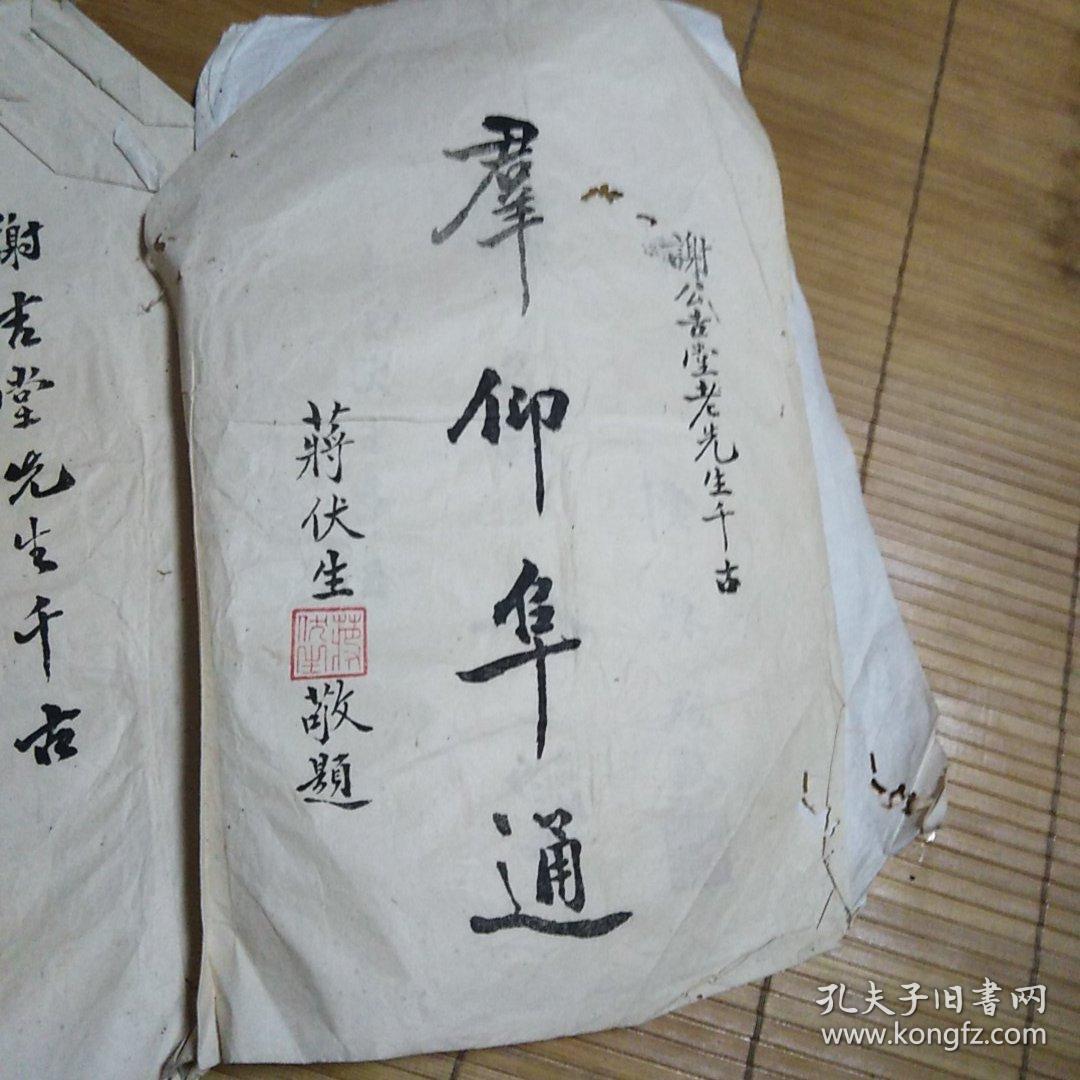 謝公吉堂老先生千古
羣仰隼通
蔣伏生
敬題
謝吉堂先生千古
孔夫子旧書网
www.kongfz.com